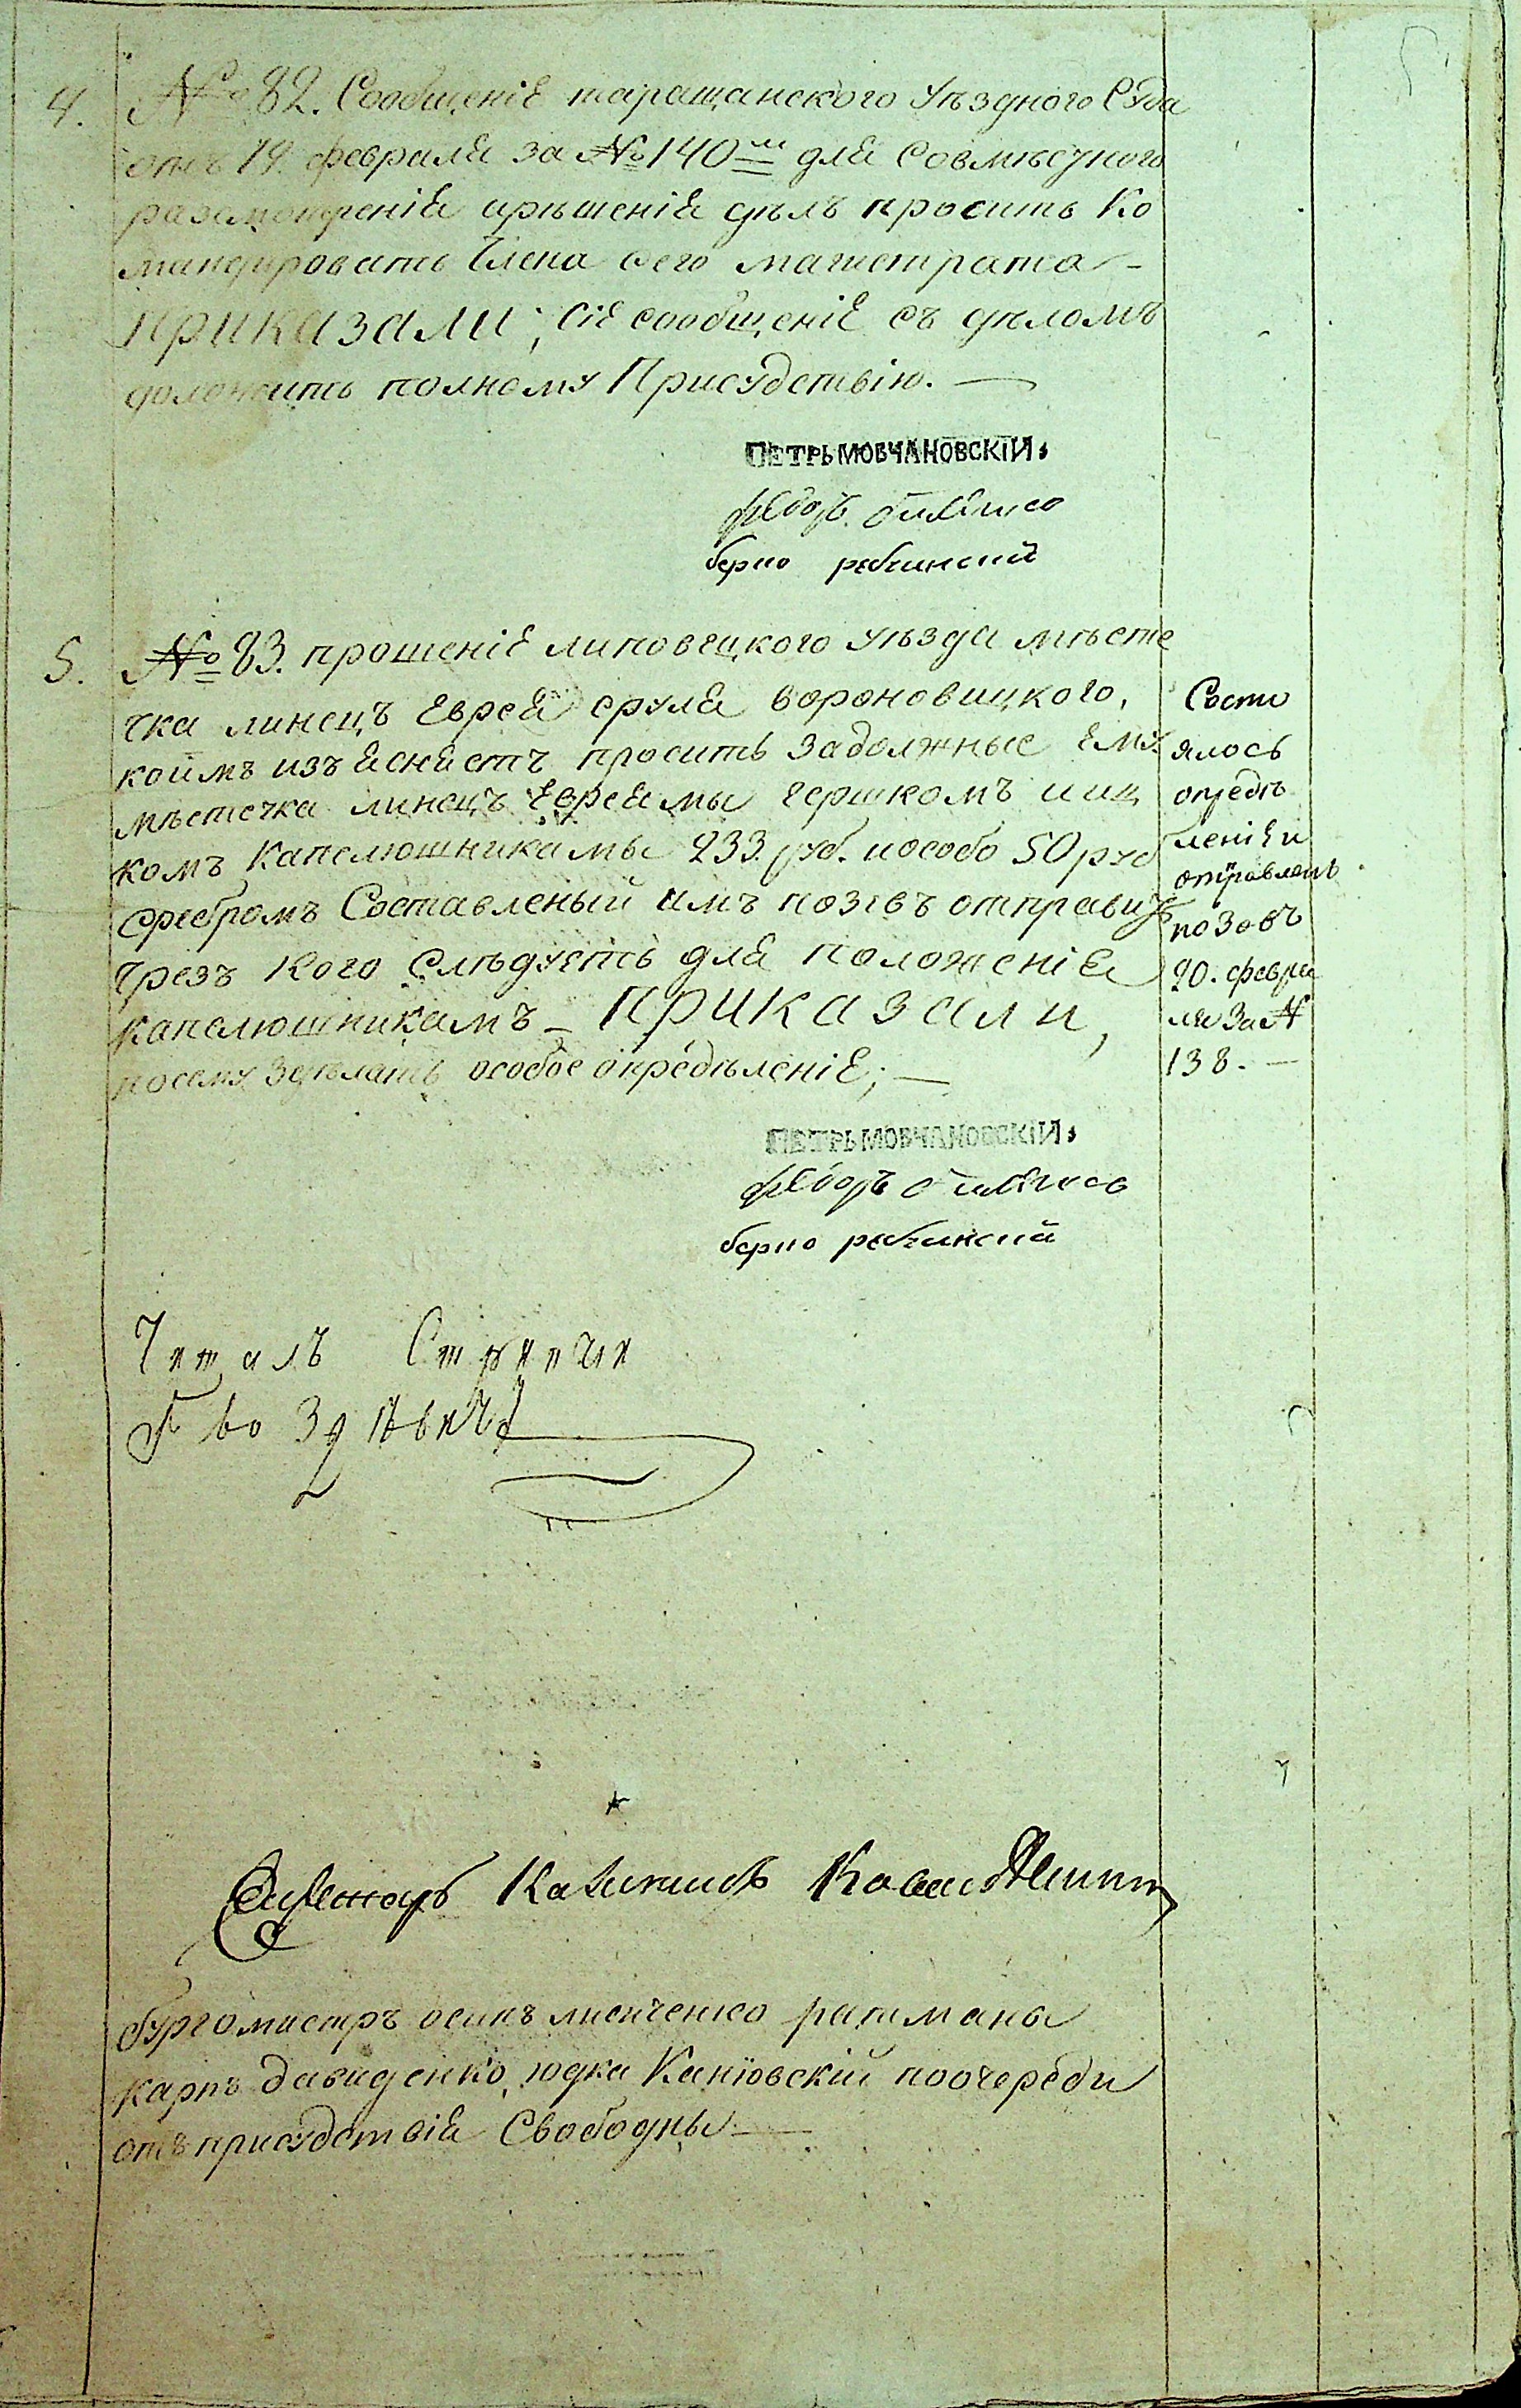 4. № 82. Сообщеніе таращанского уѣздного Суда
отъ 19. февраля за № 140 м для совмѣстного
разсмотренія ирѣшенія дѣлъ просить Ко
мандировать Члена сего магистрата -
приказали; сіе сообщеніе съ дѣломъ
доложить полному Присудствію. —
ПЕТРЬ МОВЧАНОВСКІЙ
федоръ
берко
5. № 83. прошеніе липовецкого уѣзда мѣсте
чка линецъ Еврея сруля вороновицкого,
коимъ изъясняетъ просить задолжные Ему
мѣстечка линецъ Евреямы гершкомъ и иц
комъ Капелюшникамы 233. руб. иособо 50 руб
сребромъ Составленый имъ позовъ отправить
Чрезъ кого слѣдуетъ для положенія
капелюшникамъ - приказали,
посему здѣлать особое опредѣленіе; —
Состо
ялось
опредѣ
леніе и
отправленъ
позовъ
20. февра
ля за №
138. —
ПЕТРЬ МОВЧАНОВСКІЙ
федоръ
берко
Читалъ Стряпчи
Гвоздѣвичъ
Секретарь
бургомистръ осипъ лисиченко ратманы
карпъ давиденко, юдка Каніовскій поочереди
отъ присудствія Свободны —